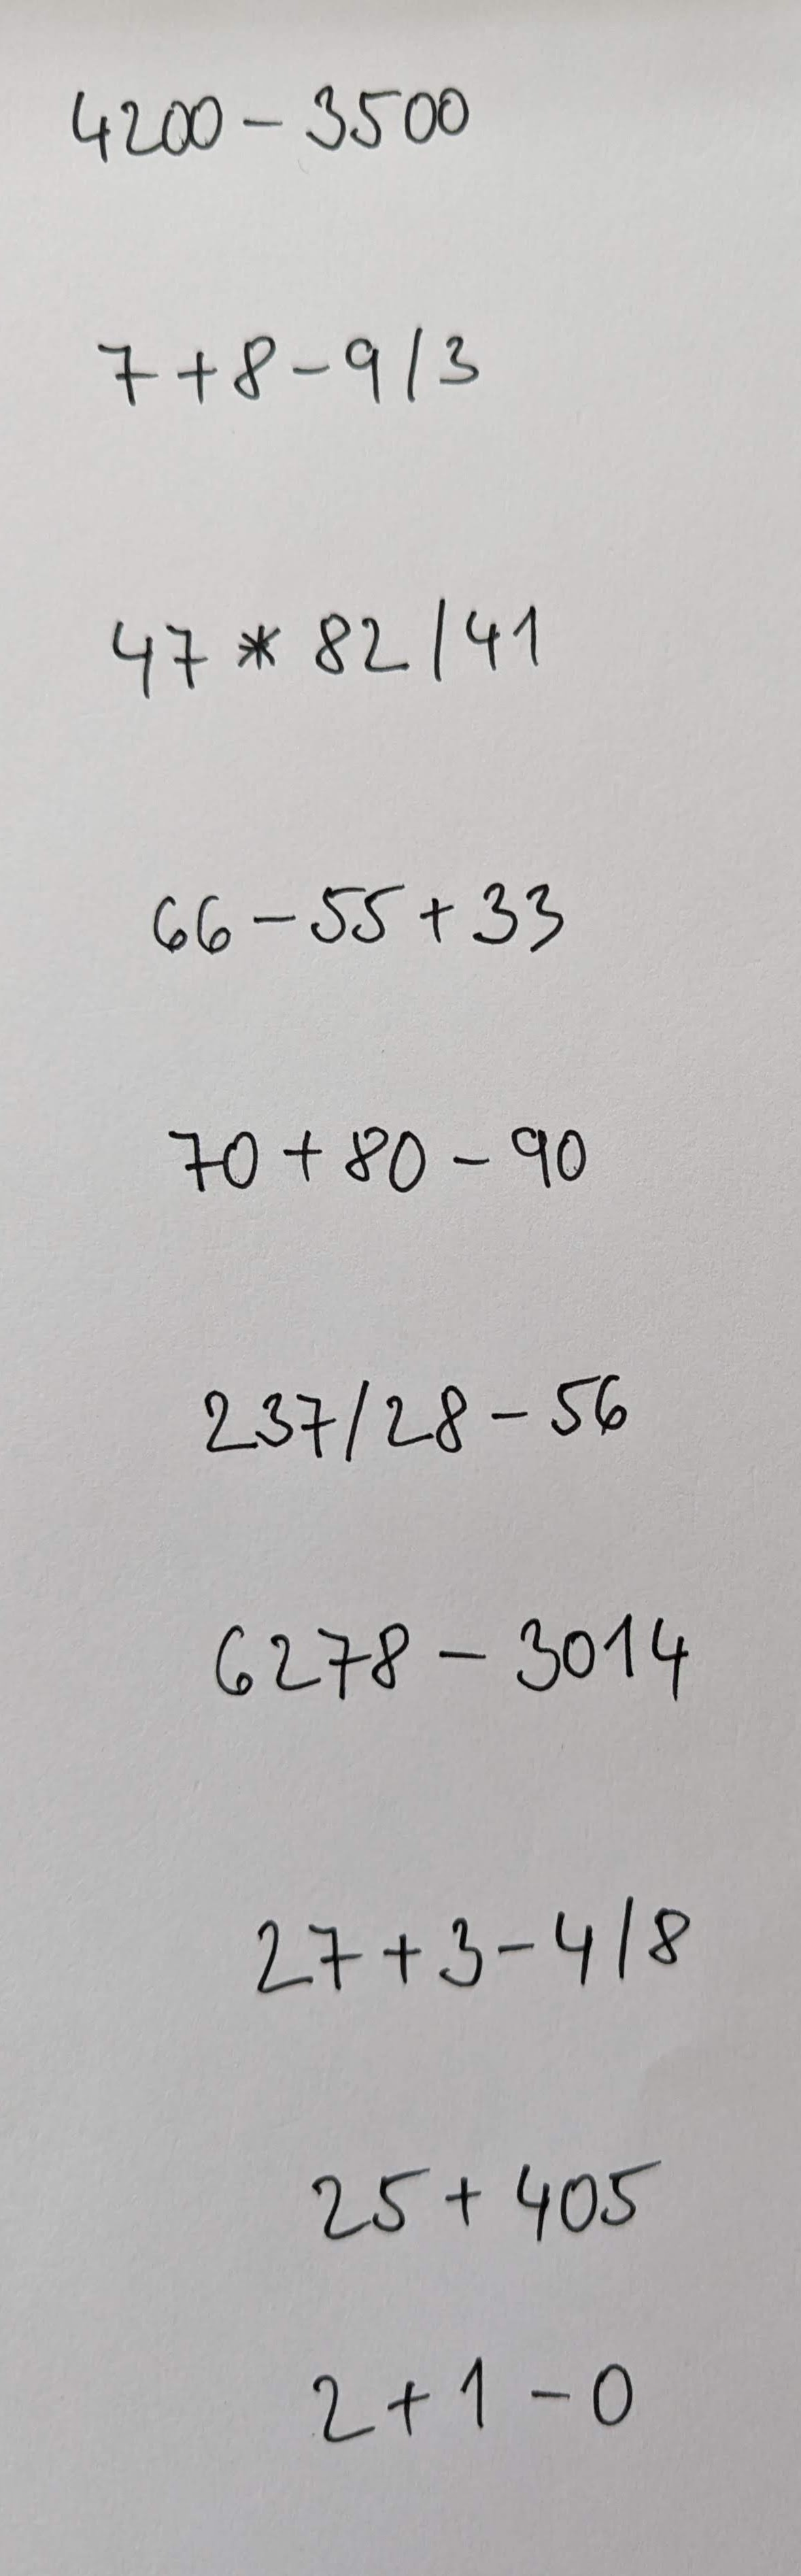 4200 - 3500
7 + 8 - 9 / 3
47 * 82 / 41
66 - 55 + 33
70 + 80 - 90
237 / 28 - 56
6278 - 3014
27 + 3 - 4 / 8
25 + 405
2 + 1 - 0